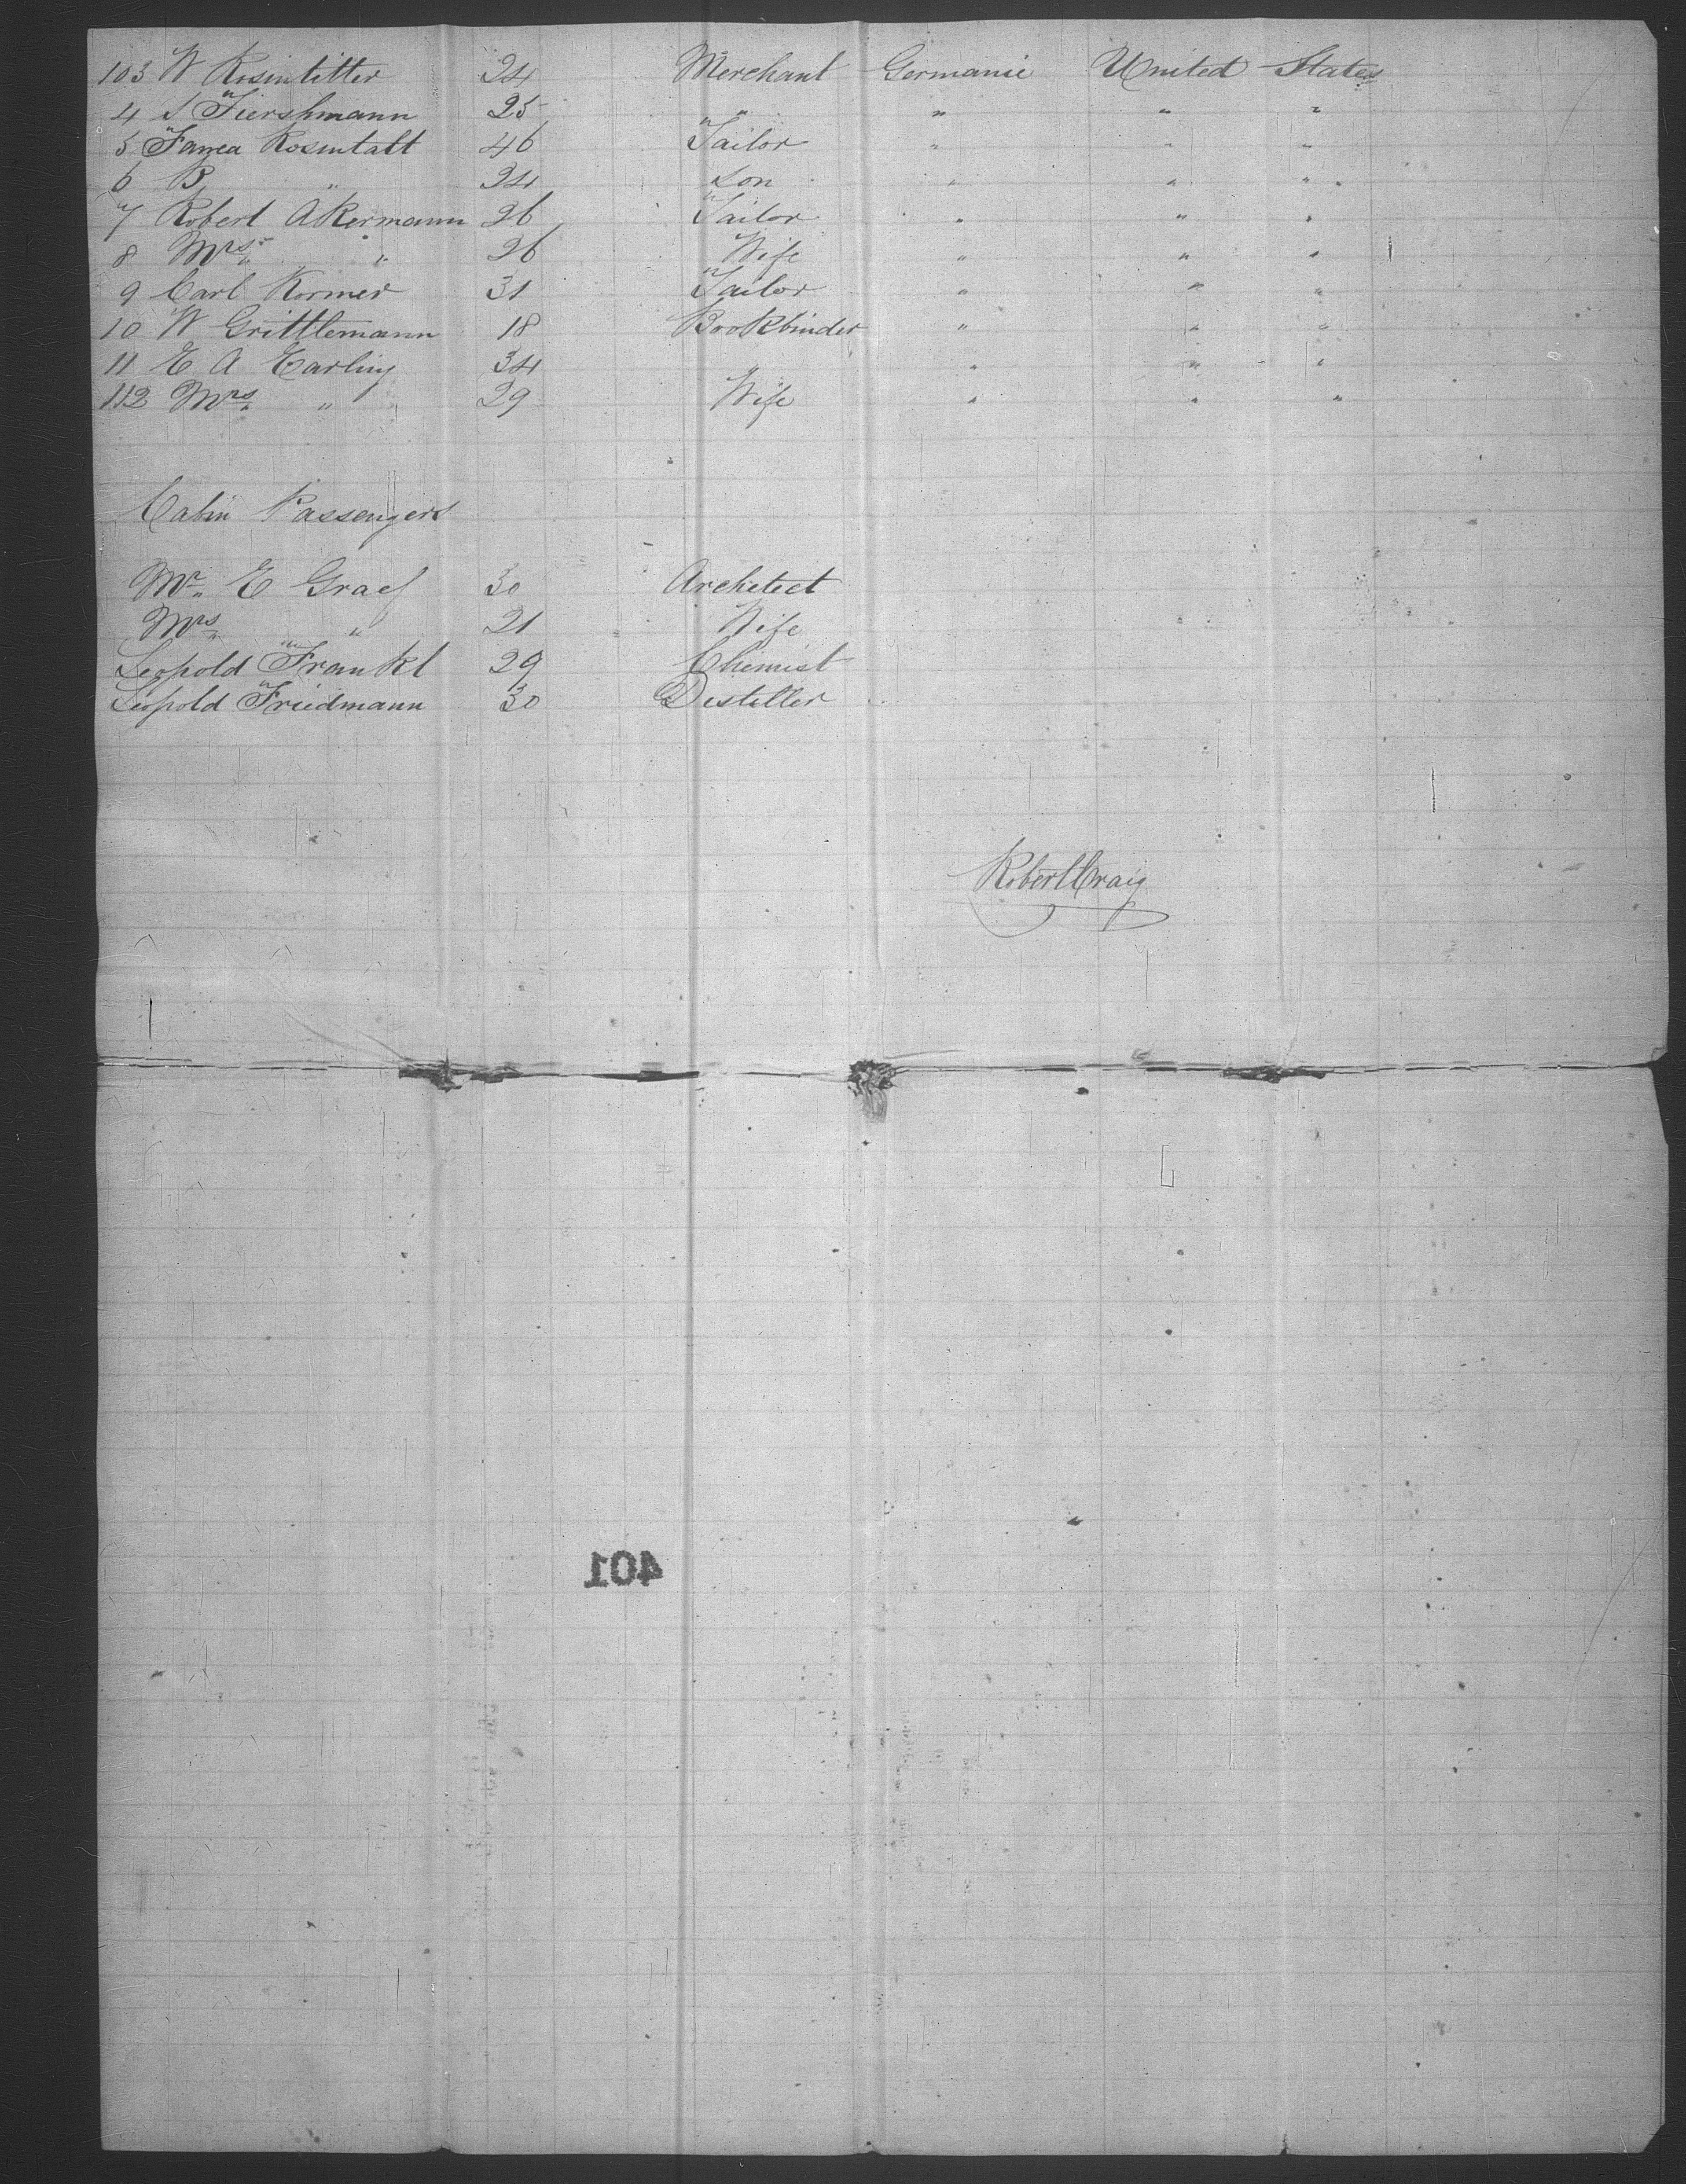 103 W Rosintitter 24 Merchant Germanie United States
4 S Fiershmann 25 " " " "
5 Fanea Rosintatt 46 Tailor " " "
6 B " 24 Son " " "
7 Robert Akermann 26 Tailor " " "
8 Mrs " 26 Wife " " "
9 Carl Kormer 31 Tailor " " "
10 W Grittlemann 18 Bookbinder " " "
11 E A Earling 34 " " " "
112 Mrs " 29 Wife " " "
Cabin Passengers
Mr E Graef 30 Architect
Mrs " 21 Wife
Leopold Frankl 29 Chemist
Leopold Friedmann 30 Destiller
Robert Craig
401